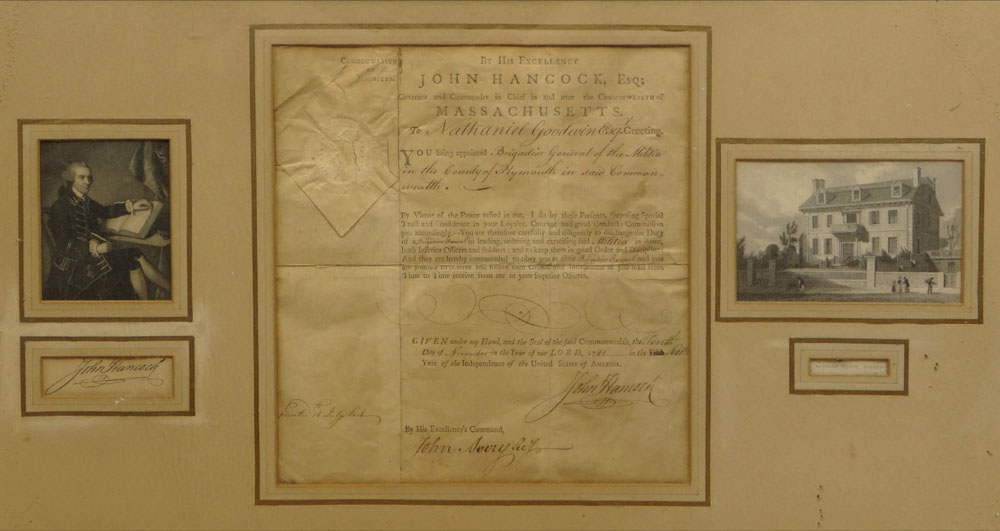 By His Excellency
JOHN HANCOCK, Esq;
Governor and Commander in Chief in and over the Commonwealth of
MASSACHUSETTS.
To Nathaniel Goodwin Esqr. Greeting.
YOU being appointed Brigadier General of the Militia
in the County of Plymouth in said Common-
wealth.
By Virtue of the Power vested in me, I do by these Presents, (reposing special
Trust and Confidence in your Loyalty, Courage and good Conduct) Commission
you accordingly. You are therefore carefully and diligently to discharge the Duty
of a Brigadier General in leading, ordering and exercising said Militia in Arms,
both Inferior Officers and Soldiers; and to keep them in good Order and Discipline:
And they are hereby commanded to obey you as their Brigadier General and you
are to observe and follow such Orders and Instructions as you shall from
Time to Time receive from me or your superior Officers.
GIVEN under my Hand, and the Seal of the said Commonwealth, the
Day of November in the Year of our LORD, 1781 in the
Year of the Independence of the United States of America.
John Hancock
By His Excellency's Command,
John Avery
John Hancock